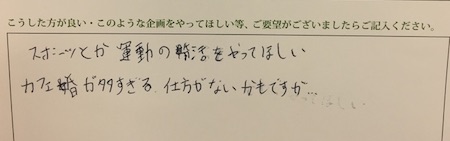 こうした方が良い・このような企画をやってほしい等、ご要望がございましたらご記入ください。
スポーツとか 運動の婚活をやってほしい
カフェ婚が多すぎる、仕方がないかもですが…